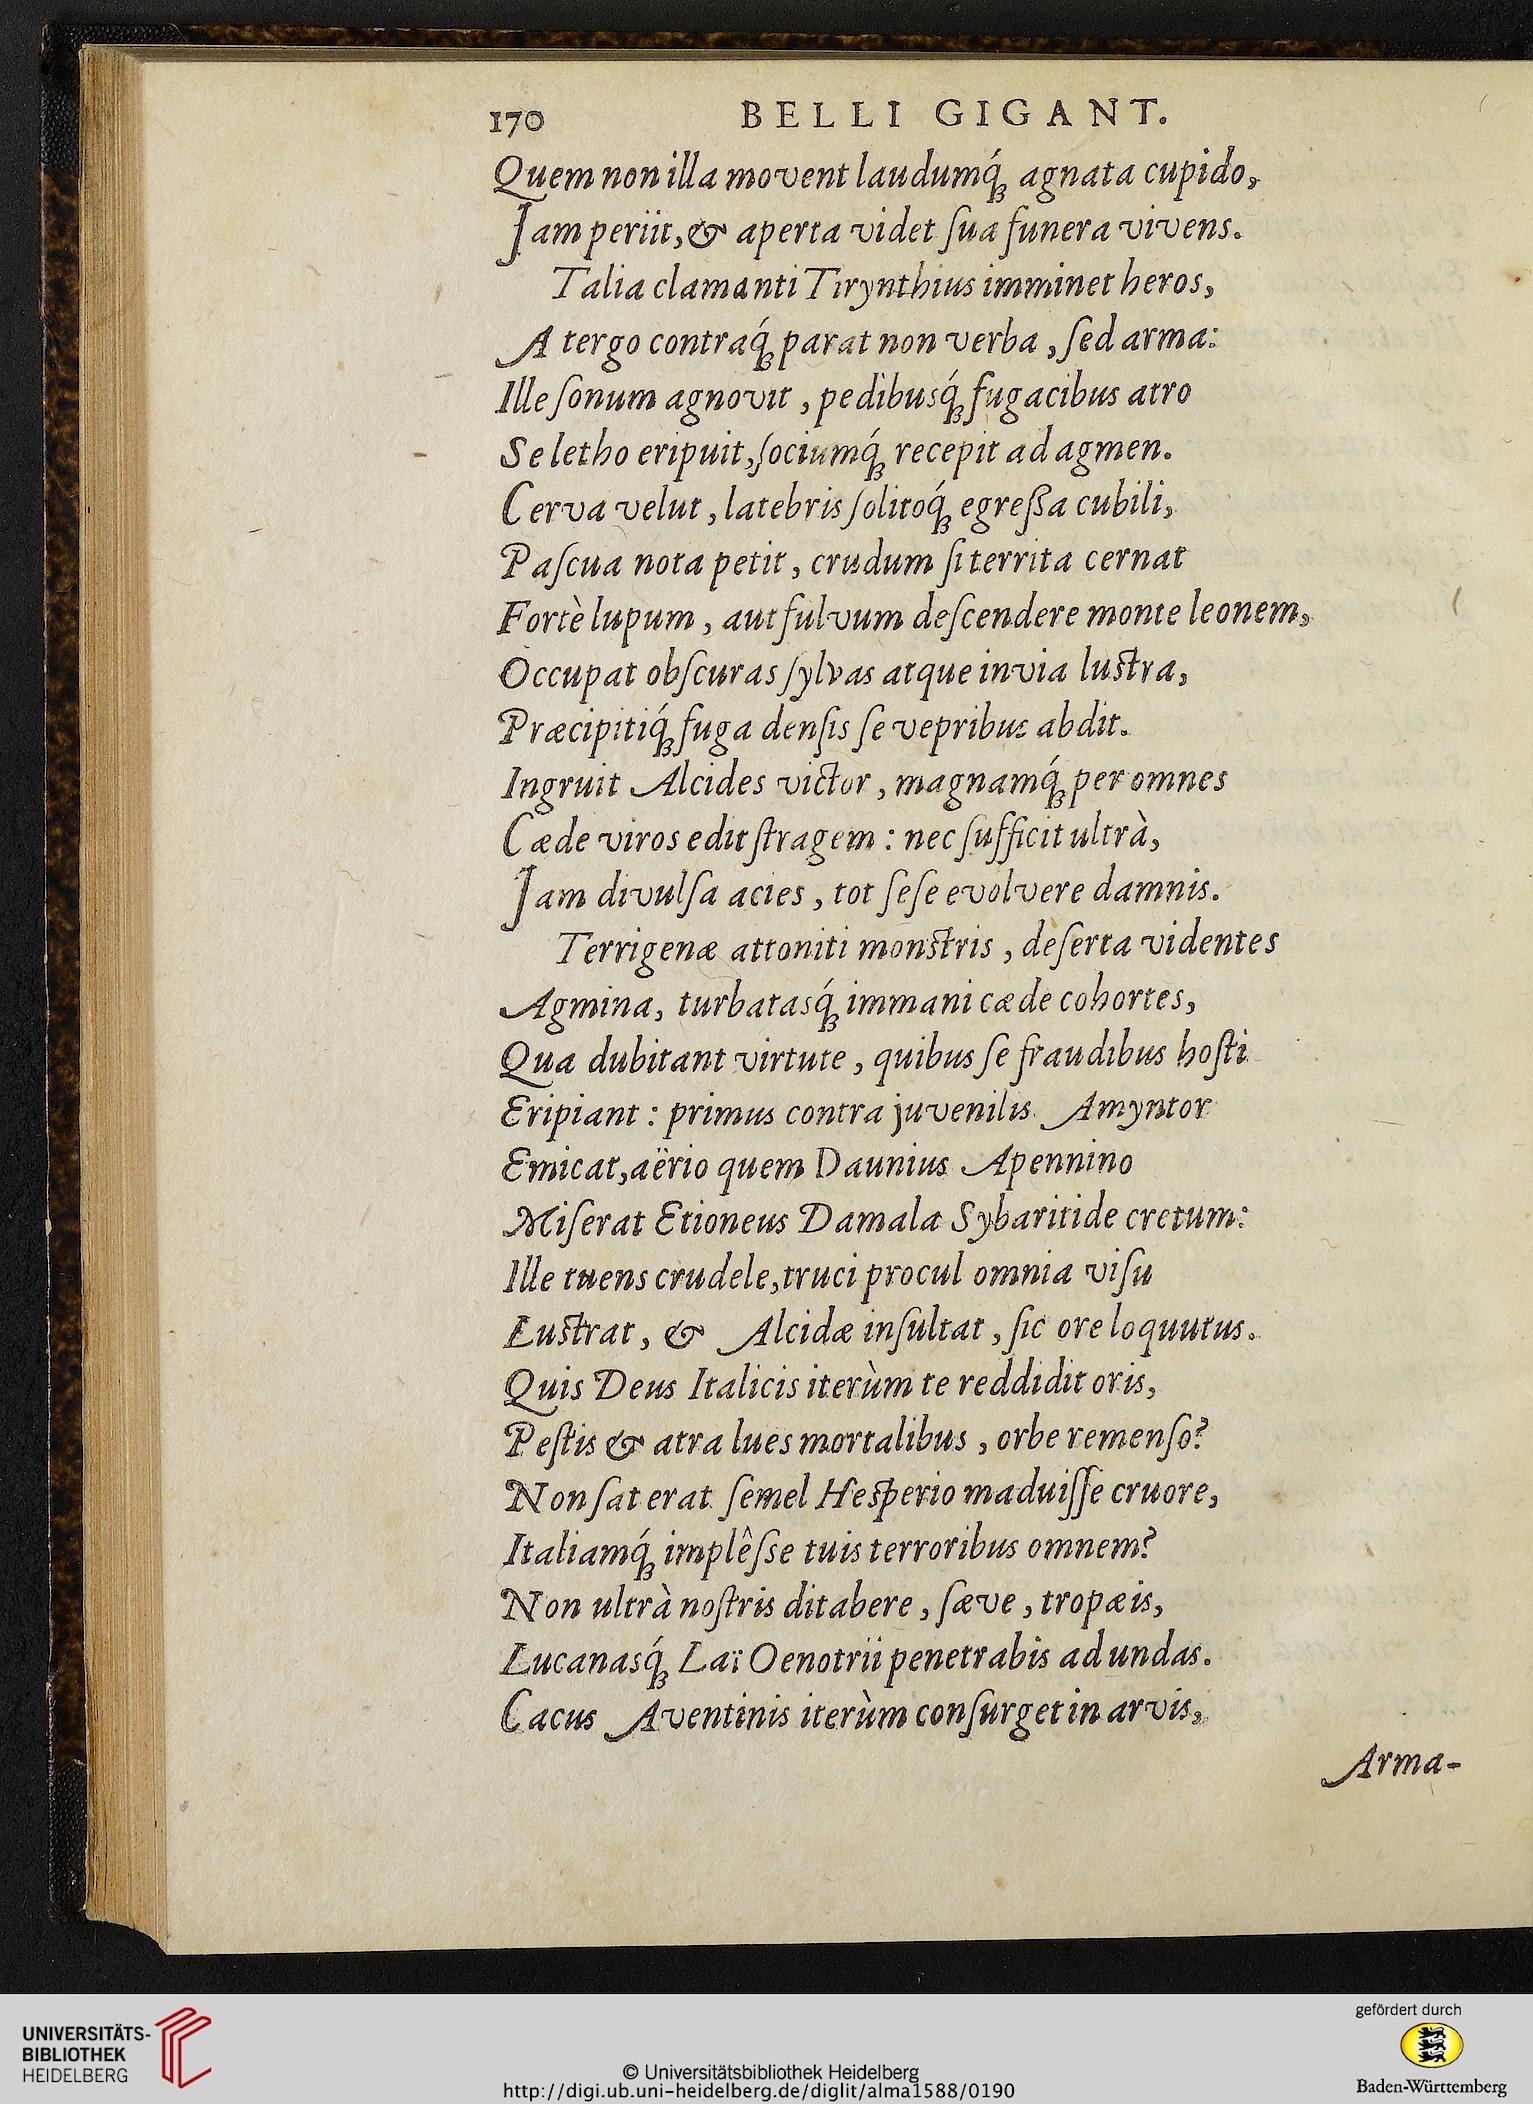 170 BELLI GIGANT.
Quem non illa movent laudumq́; agnata cupido,
Jam periit, & aperta videt ſua funera vivens.
Talia clamanti Tirynthius imminet heros,
A tergo contraq́; parat non verba, ſed arma:
Ille ſonum agnovit, pedibusq́; fugacibus atro
Se letho eripuit, ſociumq́; recepit ad agmen.
Cerva velut, latebris ſolitoq́; egreßa cubili,
Paſcua nota petit, crudum ſi territa cernat
Fortè lupum, aut fulvum deſcendere monte leonem,
Occupat obſcuras ſylvas atque invia luſtra,
Præcipitiq́; fuga denſis ſe vepribus abdit.
Ingruit Alcides victor, magnamq́; per omnes
Cæde viros edit ſtragem: nec ſufficit ultrà,
Jam divulſa acies, tot ſeſe evolvere damnis.
Terrigenæ attoniti monſtris, deſerta videntes
Agmina, turbatasq́; immani cæde cohortes,
Qua dubitant virtute, quibus ſe fraudibus hoſti
Eripiant: primus contra juvenilis Amyntor
Emicat, aërio quem Daunius Apennino
Miſerat Etioneus Damala Sybaritide cretum:
Ille tuens crudele, truci procul omnia viſu
Luſtrat, & Alcidæ inſultat, ſic ore loquutus.
Quis Deus Italicis iterùm te reddidit oris,
Peſtis & atra lues mortalibus, orbe remenſo?
Non ſat erat ſemel Heſperio maduiſſe cruore,
Italiamq́; implêſse tuis terroribus omnem?
Non ultrà noſtris ditabere, ſæve, tropæis,
Lucanasq́; Laï Oenotrii penetrabis ad undas.
Cacus Aventinis iterùm conſurget in arvis,
Arma-
UNIVERSITÄTS-
BIBLIOTHEK
HEIDELBERG
© Universitätsbibliothek Heidelberg
http://digi.ub.uni-heidelberg.de/diglit/alma1588/0190
gefördert durch
Baden-Württemberg